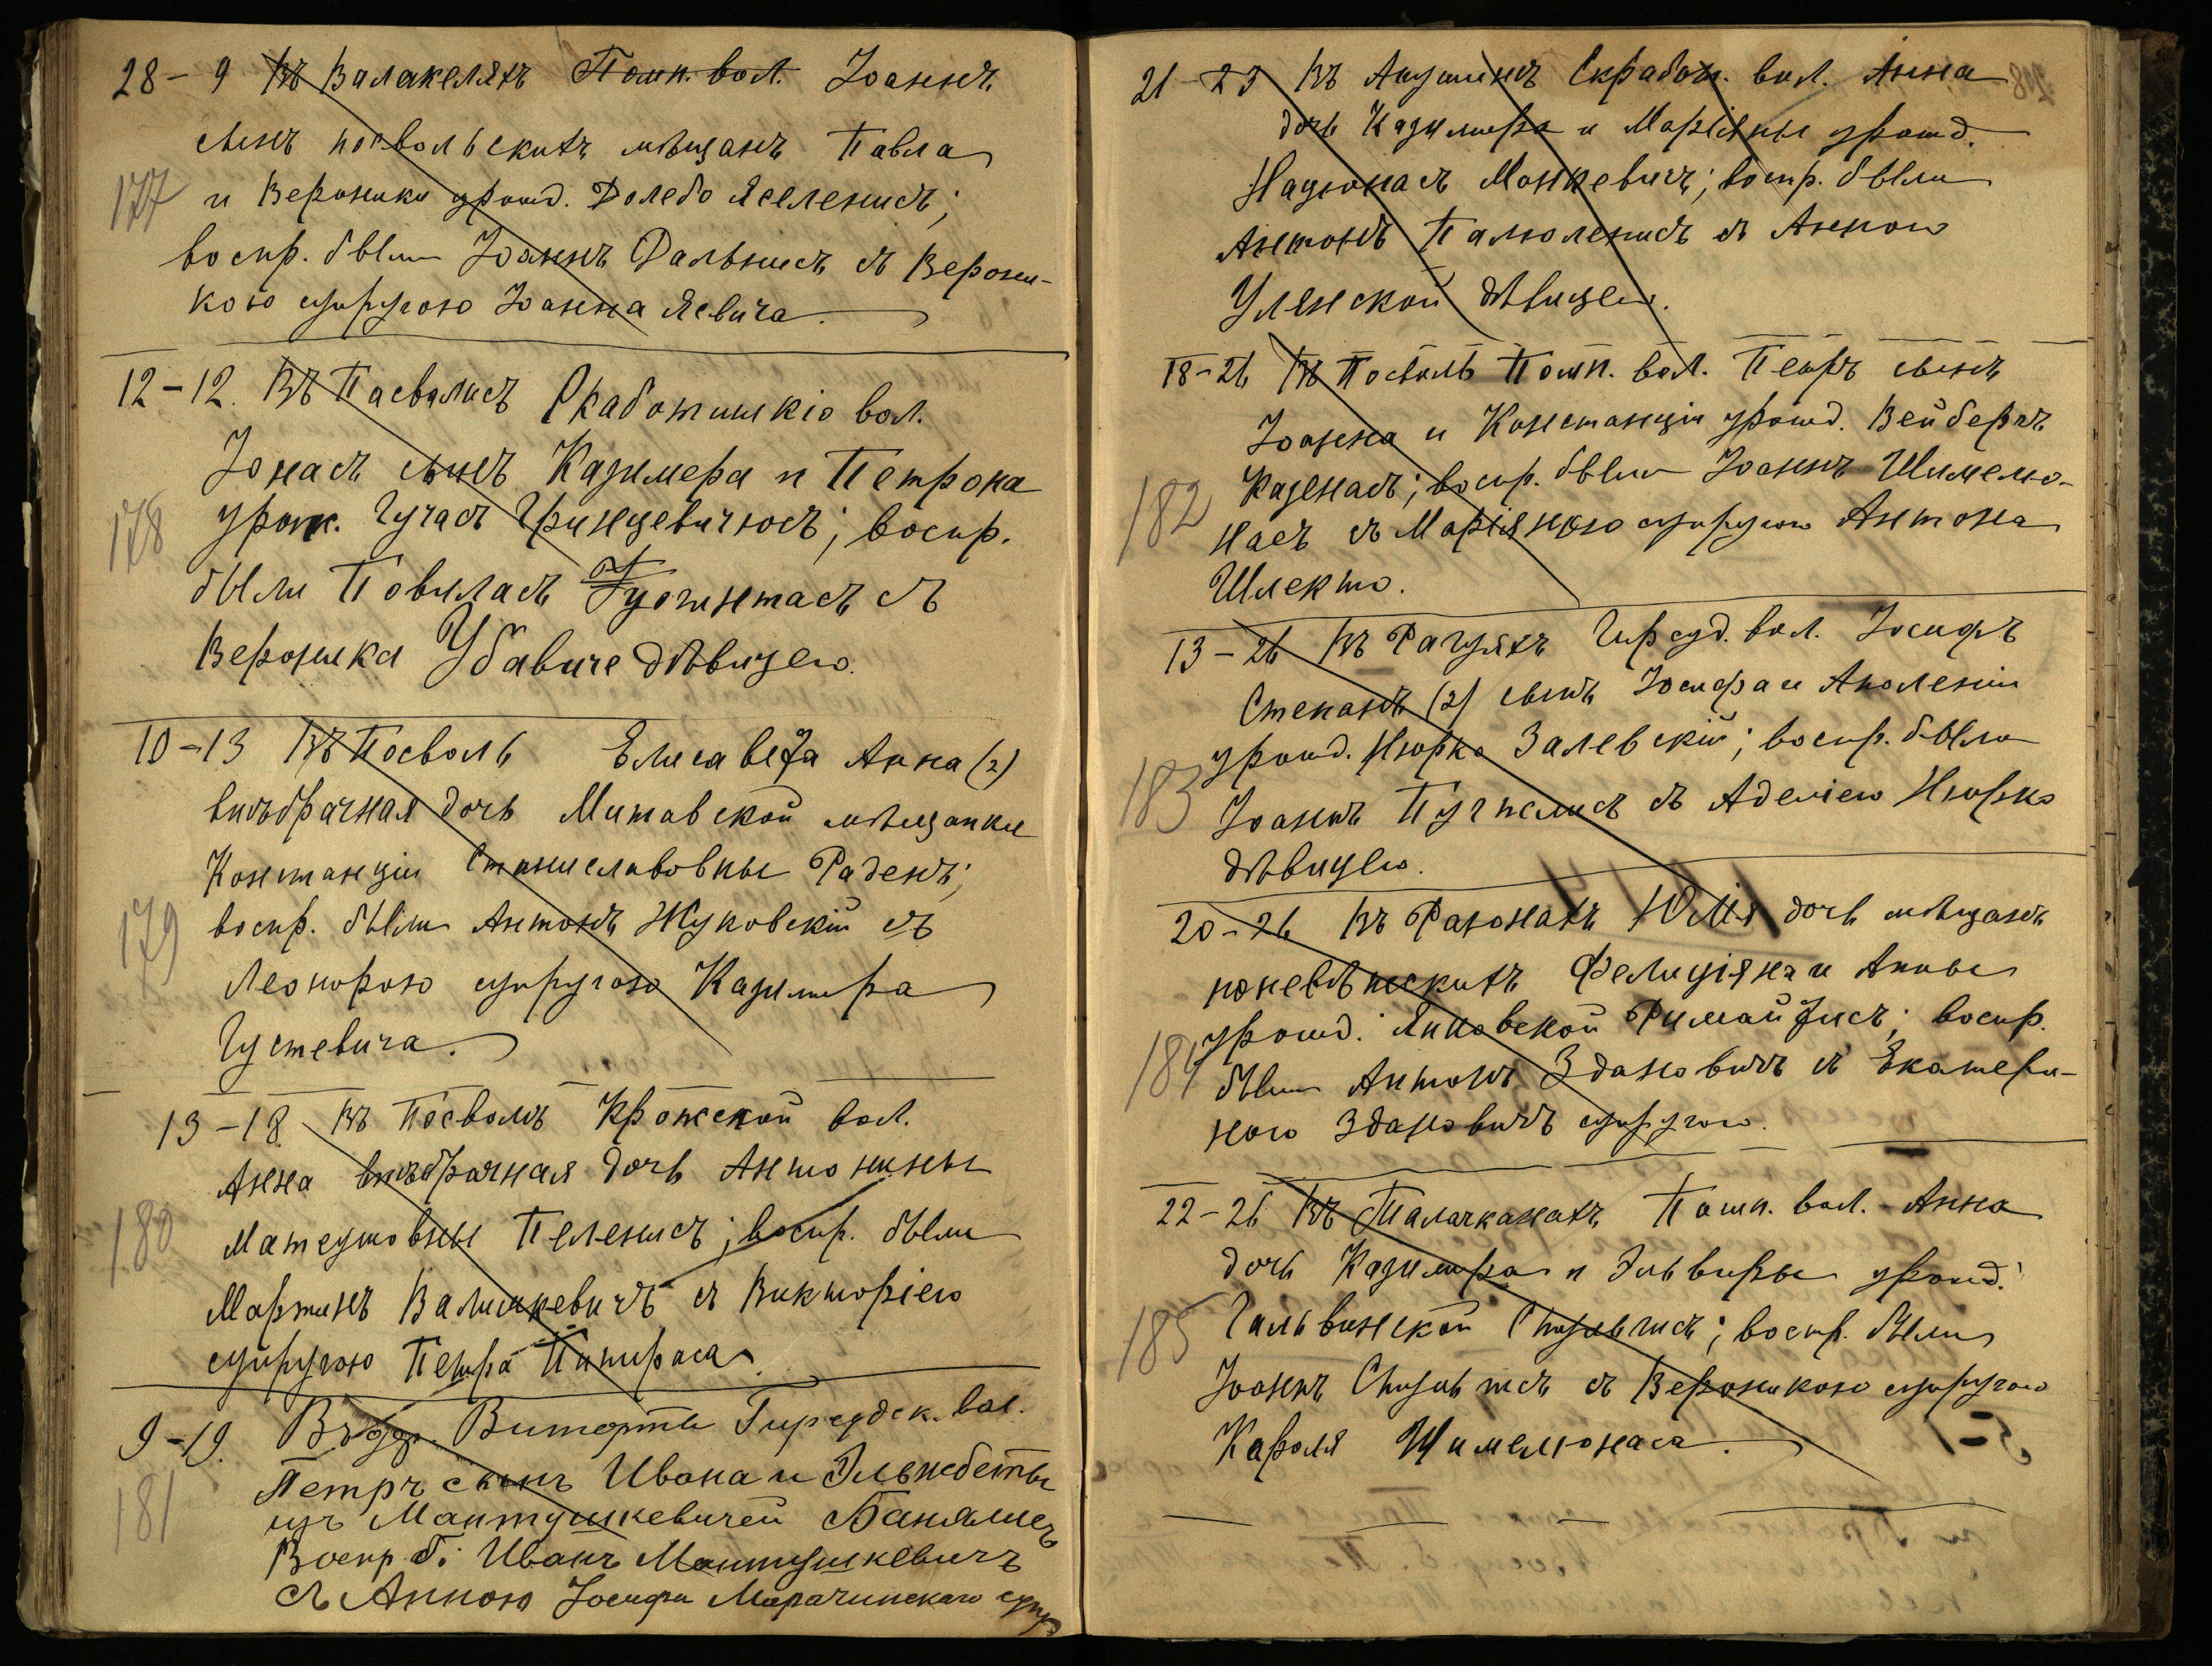 28 – 9 Въ Валакеляхъ Помп. вол. Іоаннъ
сынъ посвольскихъ мѣщанъ Павла
177
и Вероники урожд. Долебо Яселенисъ;
воспр. были Іоаннъ Дальнисъ съ Верони-
кою супругою Іоанна Ясвича.
12 – 12. Въ Пасвалисъ Скаботишкіо вол.
Іонасъ сынъ Казимера и Петрона
178
урож. Гучасъ Гринцевичюсъ; воспр.
были Повиласъ Гужинтасъ съ
Вероника Убавиче дѣвицею.
10 – 13 Въ Посволь Елисавета Анна (2)
внѣбрачная дочь Митавской мѣщанки
Констанціи Станиславовны Раденъ;
179
воспр. были Антонъ Жуковскій съ
Леонорою супругою Казимира
Густевича.
13 – 18 Въ Посволь Крожской вол.
Анна внѣбрачная дочь Антонины
180
Матеушовны Пеленисъ; воспр. были
Мартинъ Валишкевичъ съ Викторіею
супругою Петра Пипираса.
9 – 19. Въ Витортѣ Гирсудск. вол.
181
Петръ сынъ Ивана и Эльжбеты
изъ Мантушкевичей Банялисъ
Воспр. б: Иванъ Мантушкевичъ
съ Анною Іосифа Марачинскаго супр
21 – 25 Въ Скработ. вол. Анна
дочь Казимира и Маріяны урожд.
Нацюнасъ Монкевичъ; воспр. были
Антонъ Памоленисъ съ Анною
Улянской дѣвицею.
18 – 26 Въ Посволь Помп. вол. Петръ сынъ
Іоанна и Констанціи урожд. Вейбергъ
182
Казенасъ; воспр. были Іоаннъ Шимелю-
насъ съ Маріянною супругою Антона
Шлекто.
13 – 26 Въ Рагуяхъ Гирсуд. вол. Іосифъ
Степанъ (2) сынъ Іосифа и Аполеніи
урожд. Нюрко Залевскій; воспр. были
183
Іоаннъ Пугжлисъ съ Аделіею Нюрко
дѣвицею.
20 – 26 Въ Раюнахъ Юлія дочь мѣщанъ
поневѣжскихъ Фелиціяна и Анны
урожд. Янковской Римайтисъ; воспр.
184
были Антонъ Здановичъ съ Екатери-
ною Здановичъ супругою.
22 – 26 Въ Талачконахъ Помп. вол. Анна
дочь Казимира и Эльвиры урожд.
185
Гальвинской Спузвлисъ; воспр. были
Іоаннъ съ Вероникою супругою
Кароля Шимелюнаса.